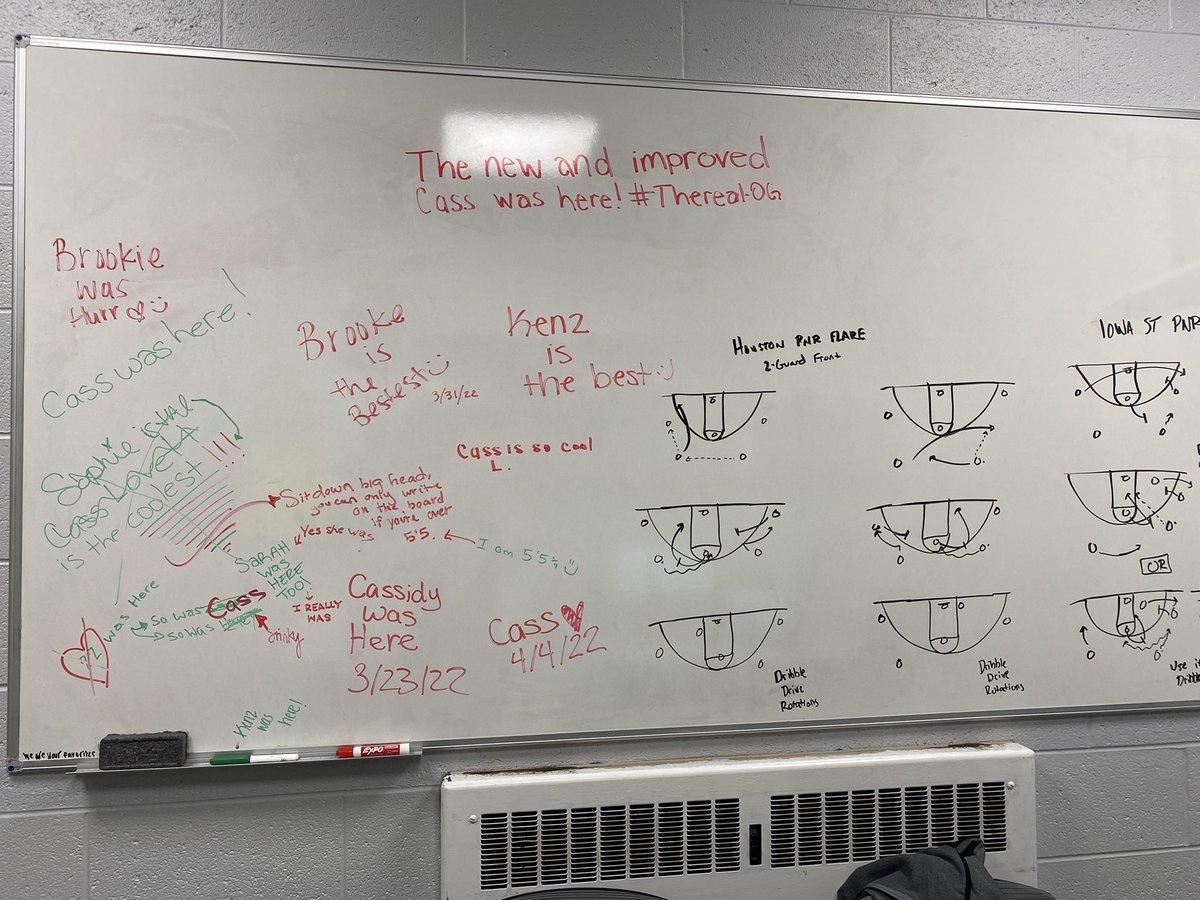 The new and improved
Cass was here! #Thereal-OG
Brookie
was
Hurr
Cass was here!
Brooke
is
the
Bestest
3/31/22
Kenz
is
the best
Cass is so cool
L.
Sophie is
Cass
is the coolest !!!
Sit down big head,
you can only write
on this board
if you're over
5'5.
Yes she was
I am 5'5 1/4
SARAH
was
HERE
TOO!
I REALLY
WAS
was Here
So was Cass
So was
Stinky
Cassidy
was
Here
3/23/22
Cass
4/4/22
Kenz
was here!
We're your favorites
EXPO
HOUSTON PNR FLARE
2-Guard Front
Dribble
Drive
Rotations
Dribble
Drive
Rotations
IOWA ST PNR
OR